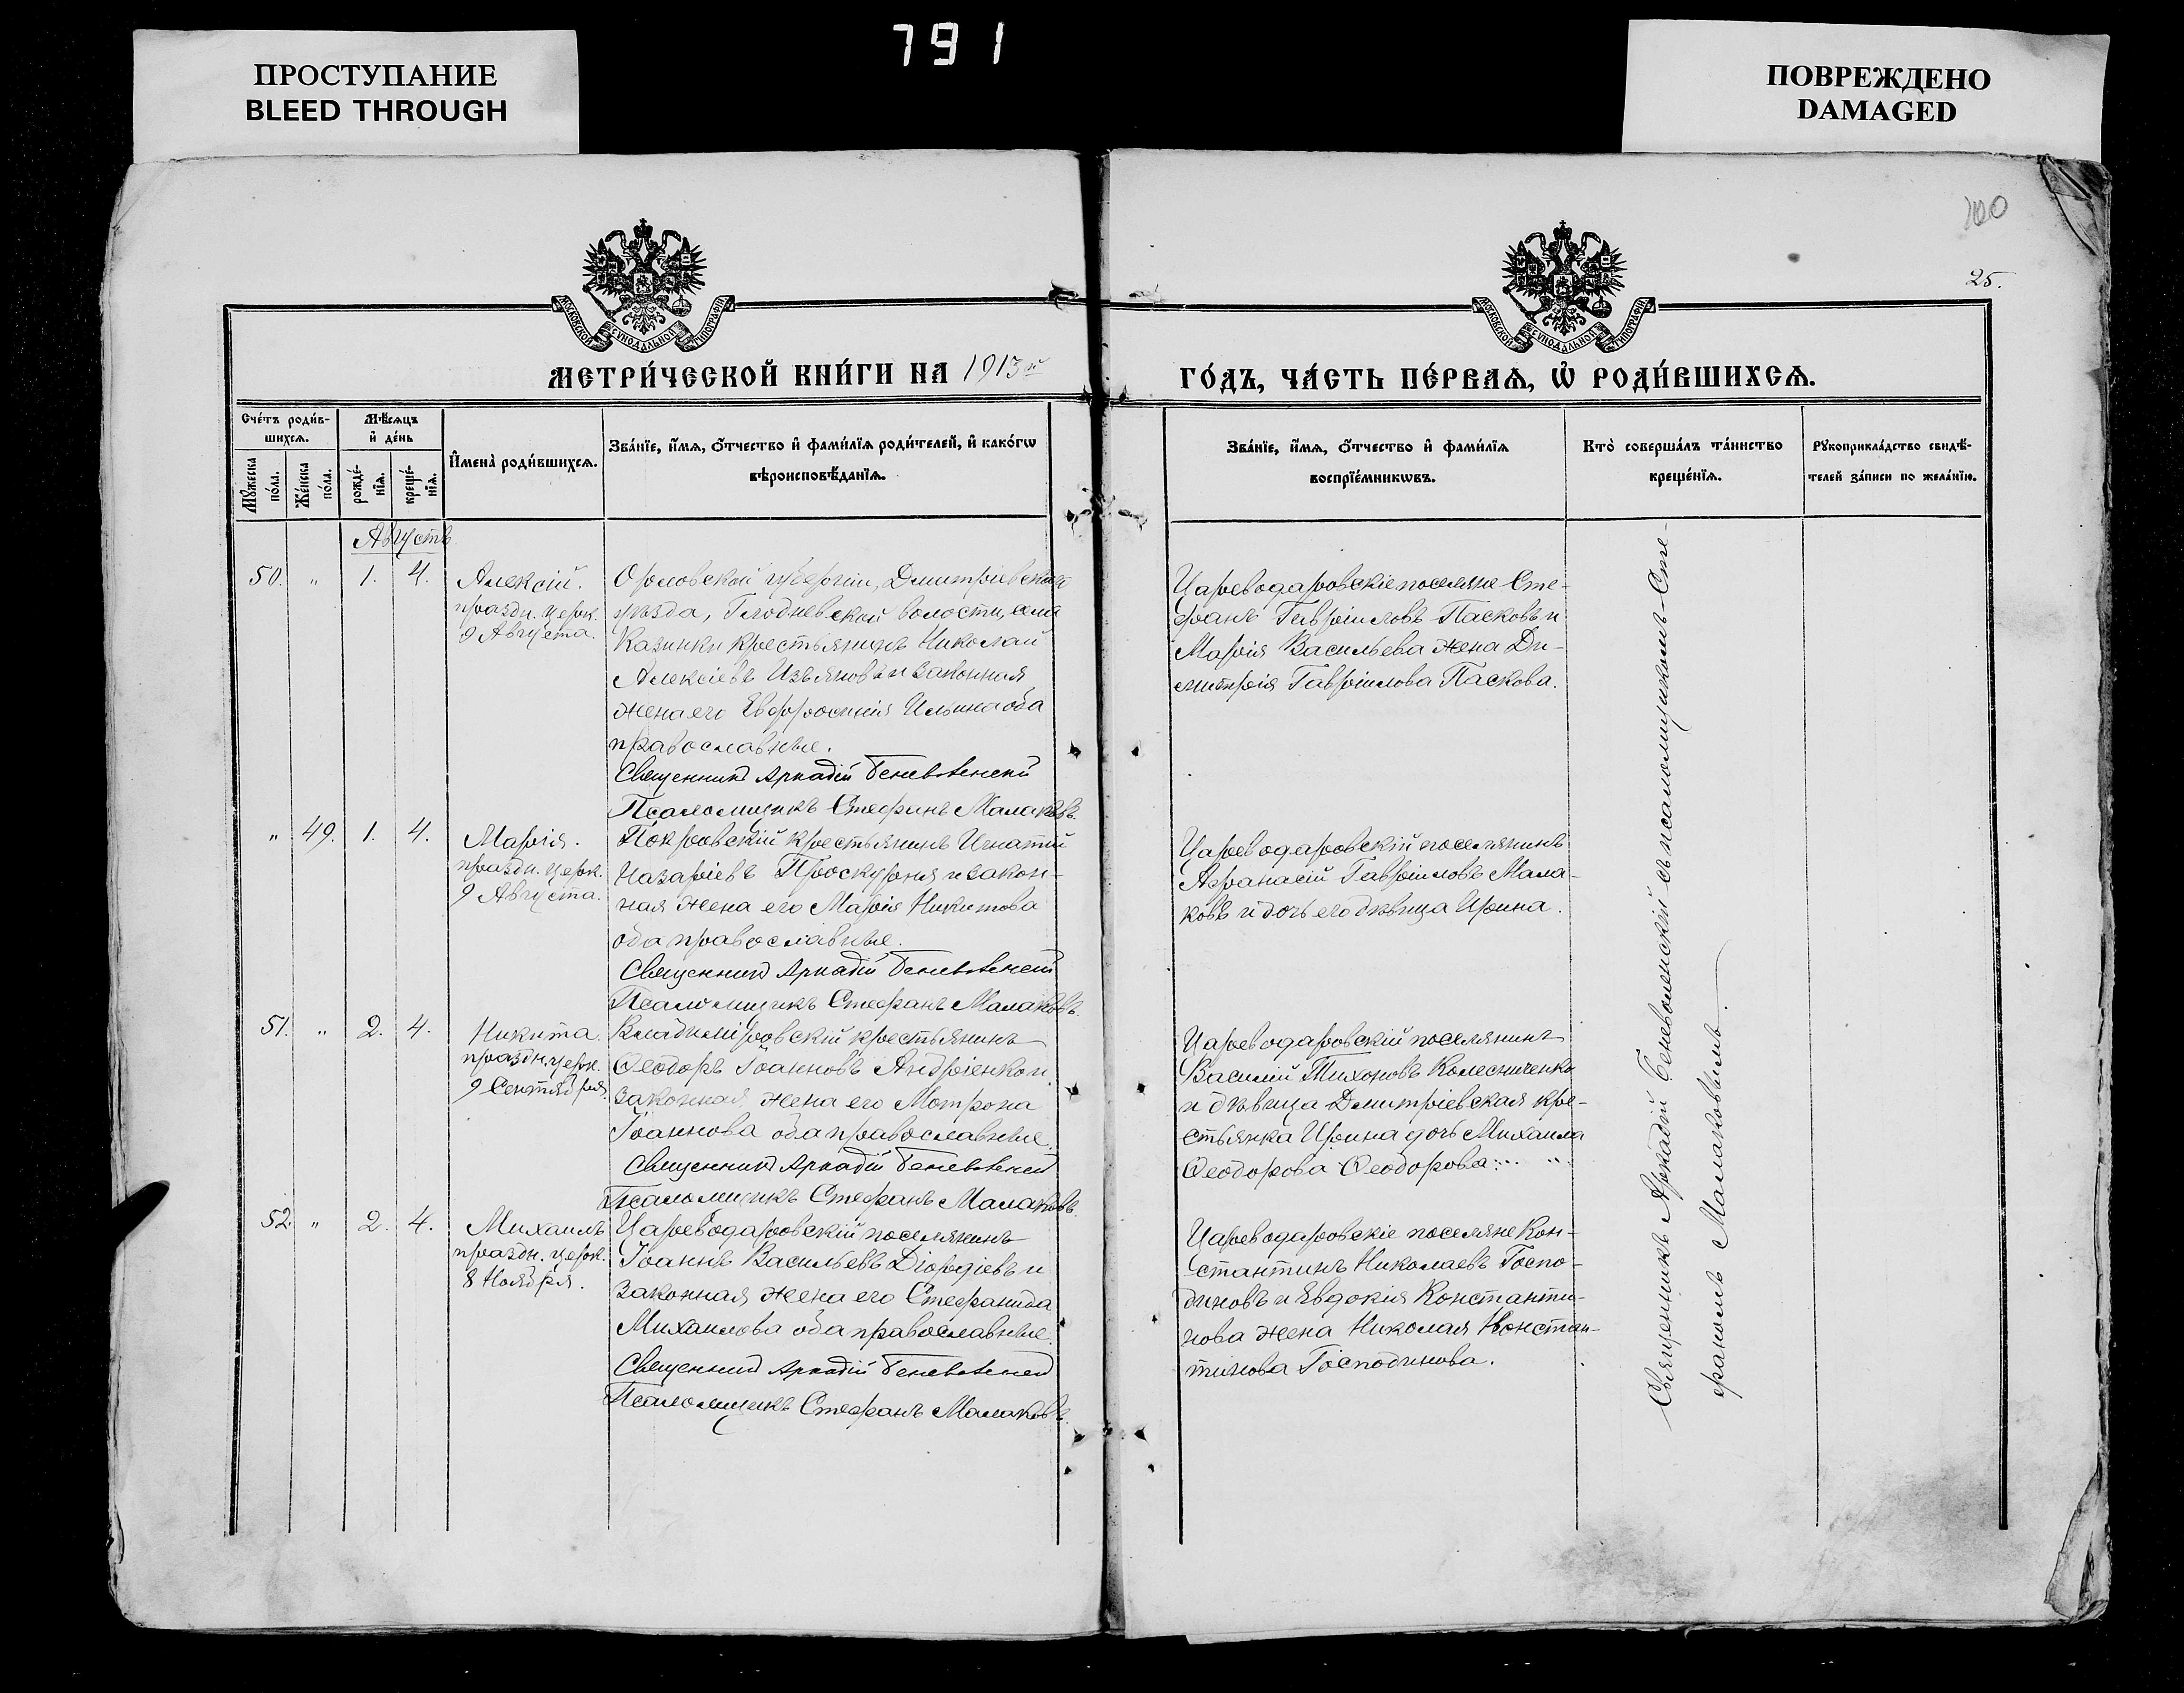 791
ПРОСТУПАНИЕ
BLEED THROUGH
ПОВРЕЖДЕНО
DAMAGED
100
25.
МОСКОВСКОЙ СѴНОДАЛЬНОЙ ТИПОГРАФІИ
МОСКОВСКОЙ СѴНОДАЛЬНОЙ ТИПОГРАФІИ
МЕТРИ́ЧЕСКОЙ КНИ́ГИ НА 1913й
ГО́ДЪ, ЧА́СТЬ ПЕ́РВАѦ, Ѡ҆ РОДИ́ВШИХСѦ.
Сче́тъ роди́в-
шихсѧ.
Мѹ́жеска по́ла.
Же́нска по́ла.
Мѣ́сѧцъ
и҆ де́нь
рожде́-
нїѧ.
креще́-
нїѧ.
И҆мена̀ роди́вшихсѧ.
Зва́нїе, и҆́мѧ, ѻ҆́тчество и҆ фами́лїѧ роди́телей, и҆ како́гѡ
вѣроисповѣ́данїѧ.
Зва́нїе, и҆́мѧ, ѻ҆́тчество и҆ фами́лїѧ
воспрїе́мникѡвъ.
Кто̀ соверша́лъ та́инство
креще́нїѧ.
Рѹкоприкла́дство свидѣ́-
телей за́писи по жела́нїю.
Августъ
50. " 1. 4.
Алексій.
праздн. церк.
9 Августа.
Орловской губерніи, Дмитріевскаго
уѣзда, Глодневской волости, села
Казинки крестьянинъ Николай
Алексіевъ Изъяновъ и законная
жена его Евфросинія Ильина оба
православные.
Священникъ Аркадій Беневоленскій
Псаломщикъ Стефанъ Малаковъ.
Царевода­ровскіе поселяне Сте-
фанъ Гавріиловъ Пасковъ и
Марія Васильева жена Ди-
митрія Гавріилова Паскова.
" 49. 1. 4.
Марія.
праздн. церк.
9 Августа.
Покровскій крестьянинъ Игнатій
Назаріевъ Проскурня и закон-
ная жена его Марія Никитова
оба православные.
Священникъ Аркадій Беневоленскій
Псаломщикъ Стефанъ Малаковъ.
Царевода­ровскій поселянинъ
Афанасій Гавріиловъ Мала-
ковъ и дочь его дѣвица Ирина.
51. " 2. 4.
Никита.
праздн. церк.
9 Сентября.
Владиміровскій крестьянинъ
Ѳеодоръ Іоанновъ Андріенко и
законная жена его Мотрона
Іоаннова оба православные.
Священникъ Аркадій Беневоленскій
Псаломщикъ Стефанъ Малаковъ.
Царевода­ровскій поселянинъ
Василій Тихоновъ Колесниченко
и дѣвица Дмитріевская кре-
стьянка Ирина дочь Михаила
Ѳеодорова Ѳеодорова
52. " 2. 4.
Михаилъ
праздн. церк.
8 Ноября.
Царевода­ровскій поселянинъ
Іоаннъ Васильевъ Діордіевъ и
законная жена его Стефанида
Михаилова оба православные.
Священникъ Аркадій Беневоленскій
Псаломщикъ Стефанъ Малаковъ.
Царевода­ровскіе поселяне Кон-
стантинъ Николаевъ Госпо-
диновъ и Евдокія Константи-
нова жена Николая Констан-
тинова Господинова.
Священникъ Аркадій Беневоленскій съ псаломщикомъ Сте-
фаномъ Малаковымъ.